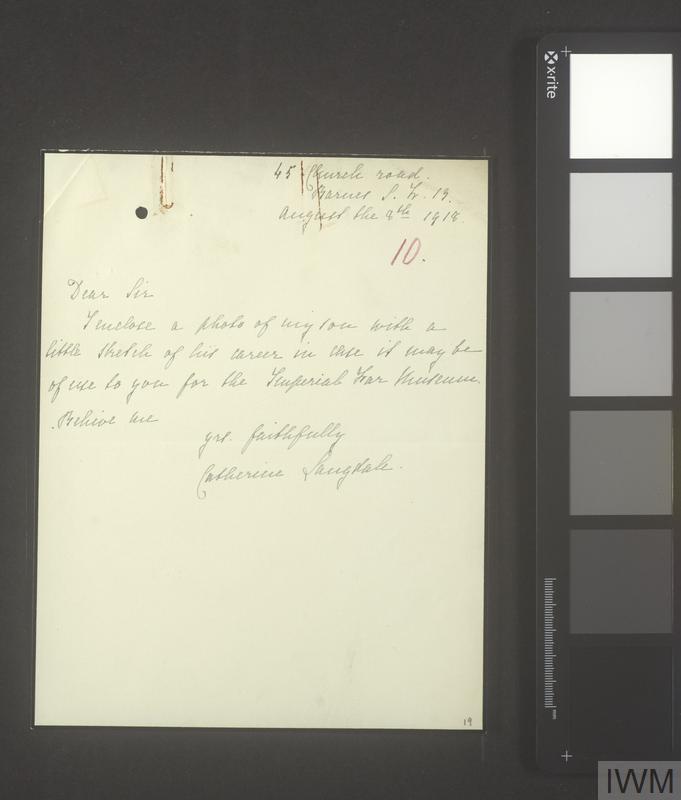 45 Church road.
Barnes S. W. 13.
August the 8th 1918.
10.
Dear Sir
I enclose a photo of my son with a
little sketch of his career in case it may be
of use to you for the Imperial War Museum.
Belive me
yrs. faithfully
Catherine Langdale.
19
x-rite
mm
IWM